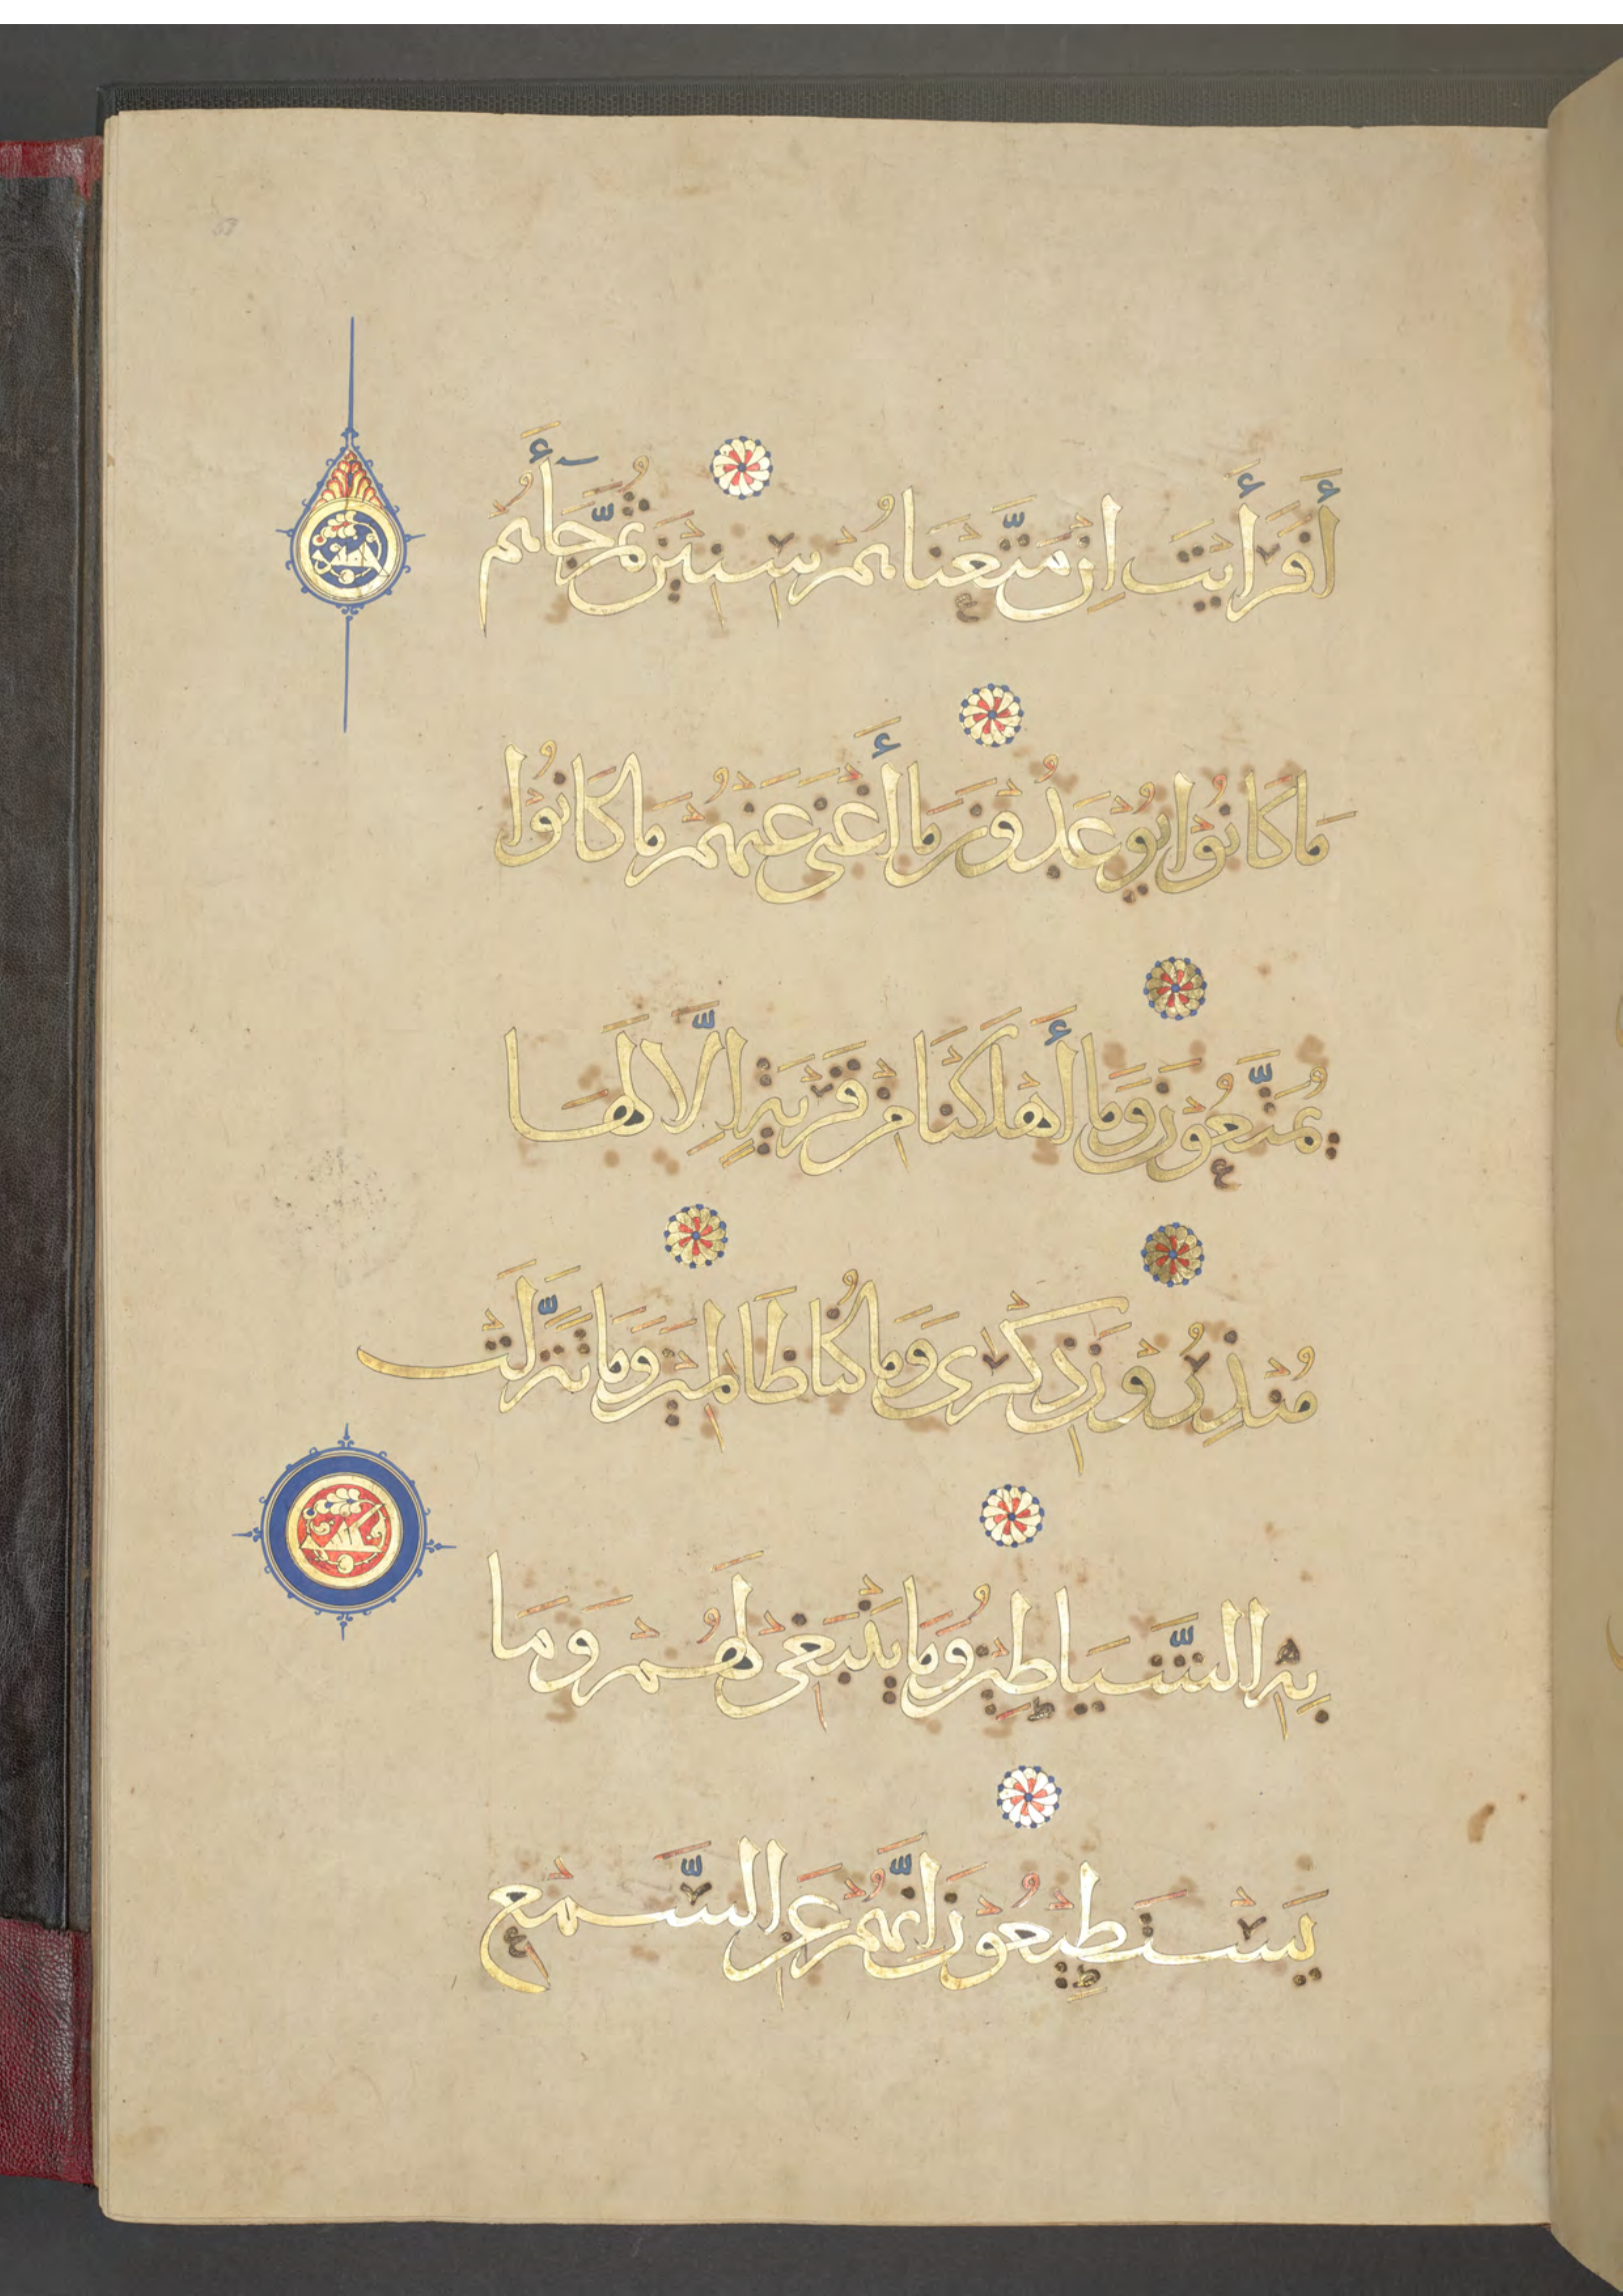 أَفَرَأَيْتَ اِنْ مَتَّعْنَاهُمْ سِنِيْنَ ثُمَّ جَآأَهُم
مَا كَانُوْا يُوْعَدُوْنَ مَا أَغْنَى عَنْهُمْ مَا كَانُوْا
يُمَتَّعُوْنَ وَمَا أَهْلَكْنَا مِنْ قَرْيَةٍ اِلَّا لَهَا
مُنْذِرُوْنَ ذِكْرَى وَمَا كُنَّا ظَالِمِيْنَ وَمَا تَنَزَّلَتْ
بِهِ الشَّيَاطِيْنُ وَمَا يَنْبَغِي لَهُمْ وَمَا
يَسْتَطِيْعُوْنَ اِنَّهُمْ عَنِ السَّمْعِ
خمسة